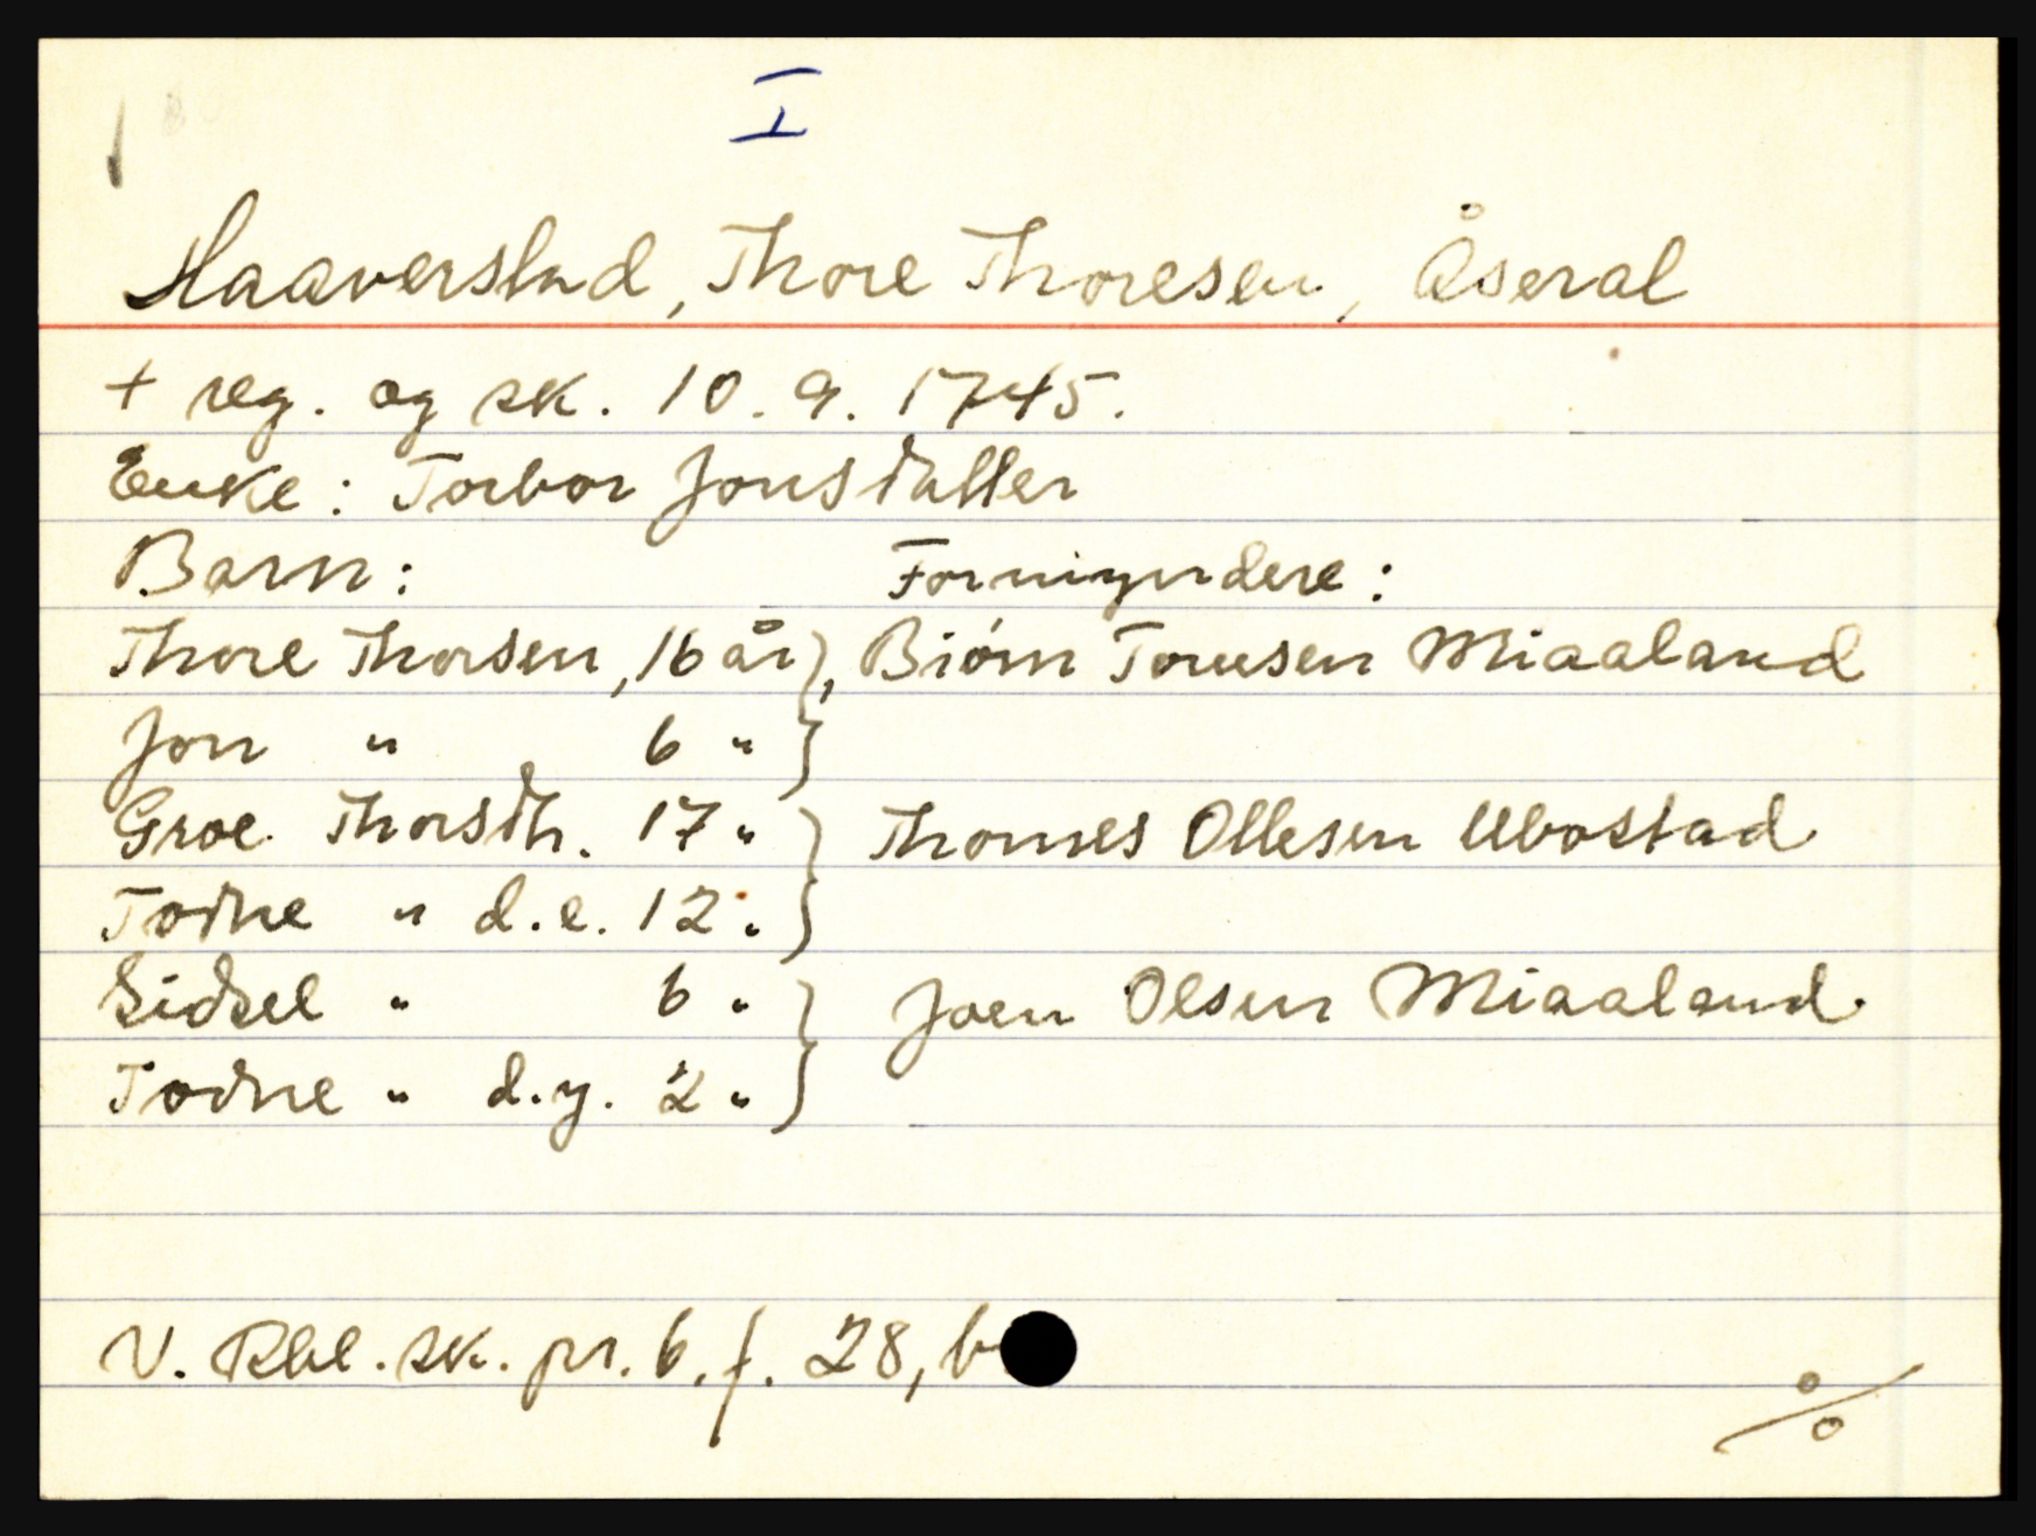 I
Haaverstad, Thore Thoresen, Åseral
+ reg. og sk. 10. 9. 1745.
Enke: Torbor Jonsdatter
Barn: Formyndere:
Thore Thorsen, 16 år, Biørn Tomesen Miaaland
Jon " 6 "
Groe Thorsdtr. 17 " Thomes Ollesen Ubostad
Todne " d.e. 12 "
Sidsel " 6 " Joen Olsen Miaaland
Todne " d.y. 2 "
V. Rbl. sk. pr. 6. f. 28, b
%